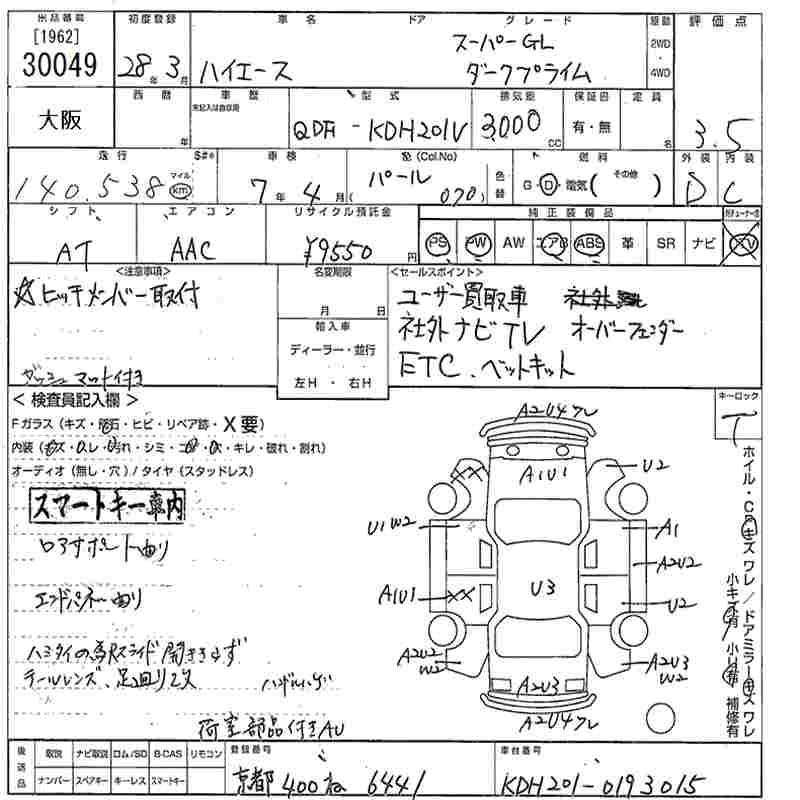 出品番号 初度登録 車名 ドア グレード 駆動 評価点
[1962]
30049 28年 3月 ハイエース スーパーGL ダークプライム 2WD 4WD
大阪 西暦 年 車歴 未記入は自家用 型式 排気量 保証書 定員
QDF-KDH201V 3000 cc 有・無 名 3.5
走行 S#* 車検 色(Col.No) 燃料 外装 内装
140,538 マイル km 7年 4月 パール (070) 色替 G・D・電気( その他 ) D C
シフト エアコン リサイクル預託金 純正装備品
AT AAC ¥9550円 PS PW AW エアB ABS 革 SR ナビ TV
<注意事項> 名変期限 <セールスポイント>
☆ヒッチメンバー取付 月 日 ユーザー買取車 社外
輸入車 社外ナビTV オーバーフェンダー
ディーラー・並行 ETC、ベットキット
ダッシュマット付き 左H・右H
<検査員記入欄> キーロック
Fガラス(キズ・飛石・ヒビ・リペア跡・X要) T
内装(キズ・スレ・汚れ・シミ・コゲ・穴・キレ・破れ・割れ)
オーディオ(無し・穴)/タイヤ(スタッドレス)
スマートキー車内
ロアサポート曲り
エンドパネル曲り
ハミタイの為Rスライド開ききらず
テールレンズ、足廻り2次
荷室部品付きAU
A2U4ワレ
A1U1
U2
U1W2
A1
A2U2
U3
A1U1
XX
XX
U2
A2U2
W2
A2U3
A2U3
W2
A2U4ワレ
ホイル・CPキズワレ/ドアミラーキズワレ
小キズ有 小凹有 補修有
後送品 取説 ナビ取説 ロム/SD B-CAS リモコン 登録番号 車台番号
ナンバー スペアキー キーレス スマートキー 京都 400 ね 6441 KDH201-0193015